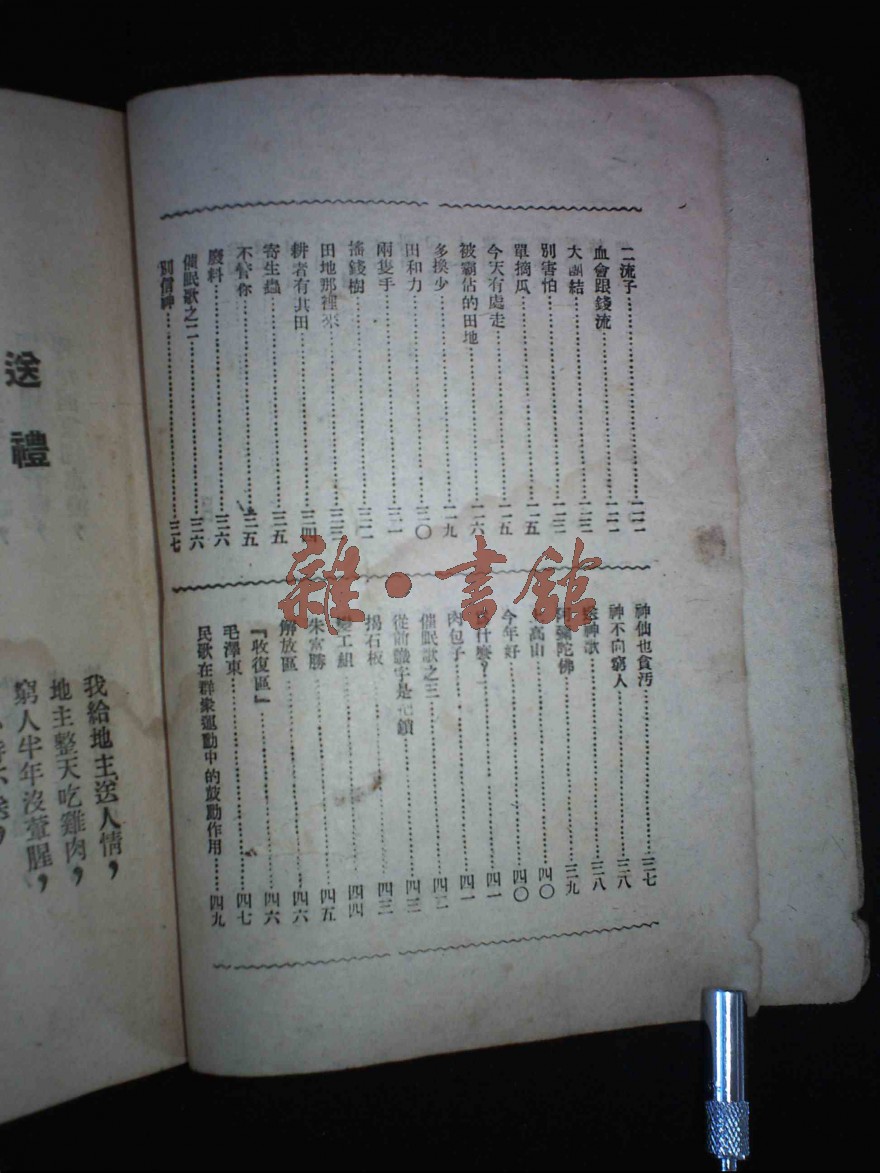 二流子……二二
血會跟錢流……二二
大團結……二三
別害怕……二三
單摘瓜……二五
今天有處走……二五
被霸佔的田地……二六
多換少……二九
田和力……三〇
兩隻手……三一
搖錢樹……三二
田地那裡來……三三
耕者有其田……三四
寄生蟲……三五
不管你……三五
廢料……三六
催眠歌之二……三六
別信神……三七
神仙也貪污……三七
神不向窮人……三八
送神歌……三八
阿彌陀佛……三九
高山……四〇
今年好……四〇
什麼？……四一
肉包子……四一
催眠歌之三……四二
從前識字是鎖……四三
搨石板……四三
變工組……四四
朱富勝……四五
解放區……四六
『收復區』……四六
毛澤東……四七
民歌在群衆運動中的鼓動作用……四九
送禮
我給地主送人情，
地主整天吃雞肉，
窮人半年沒葷腥，
雜·書館